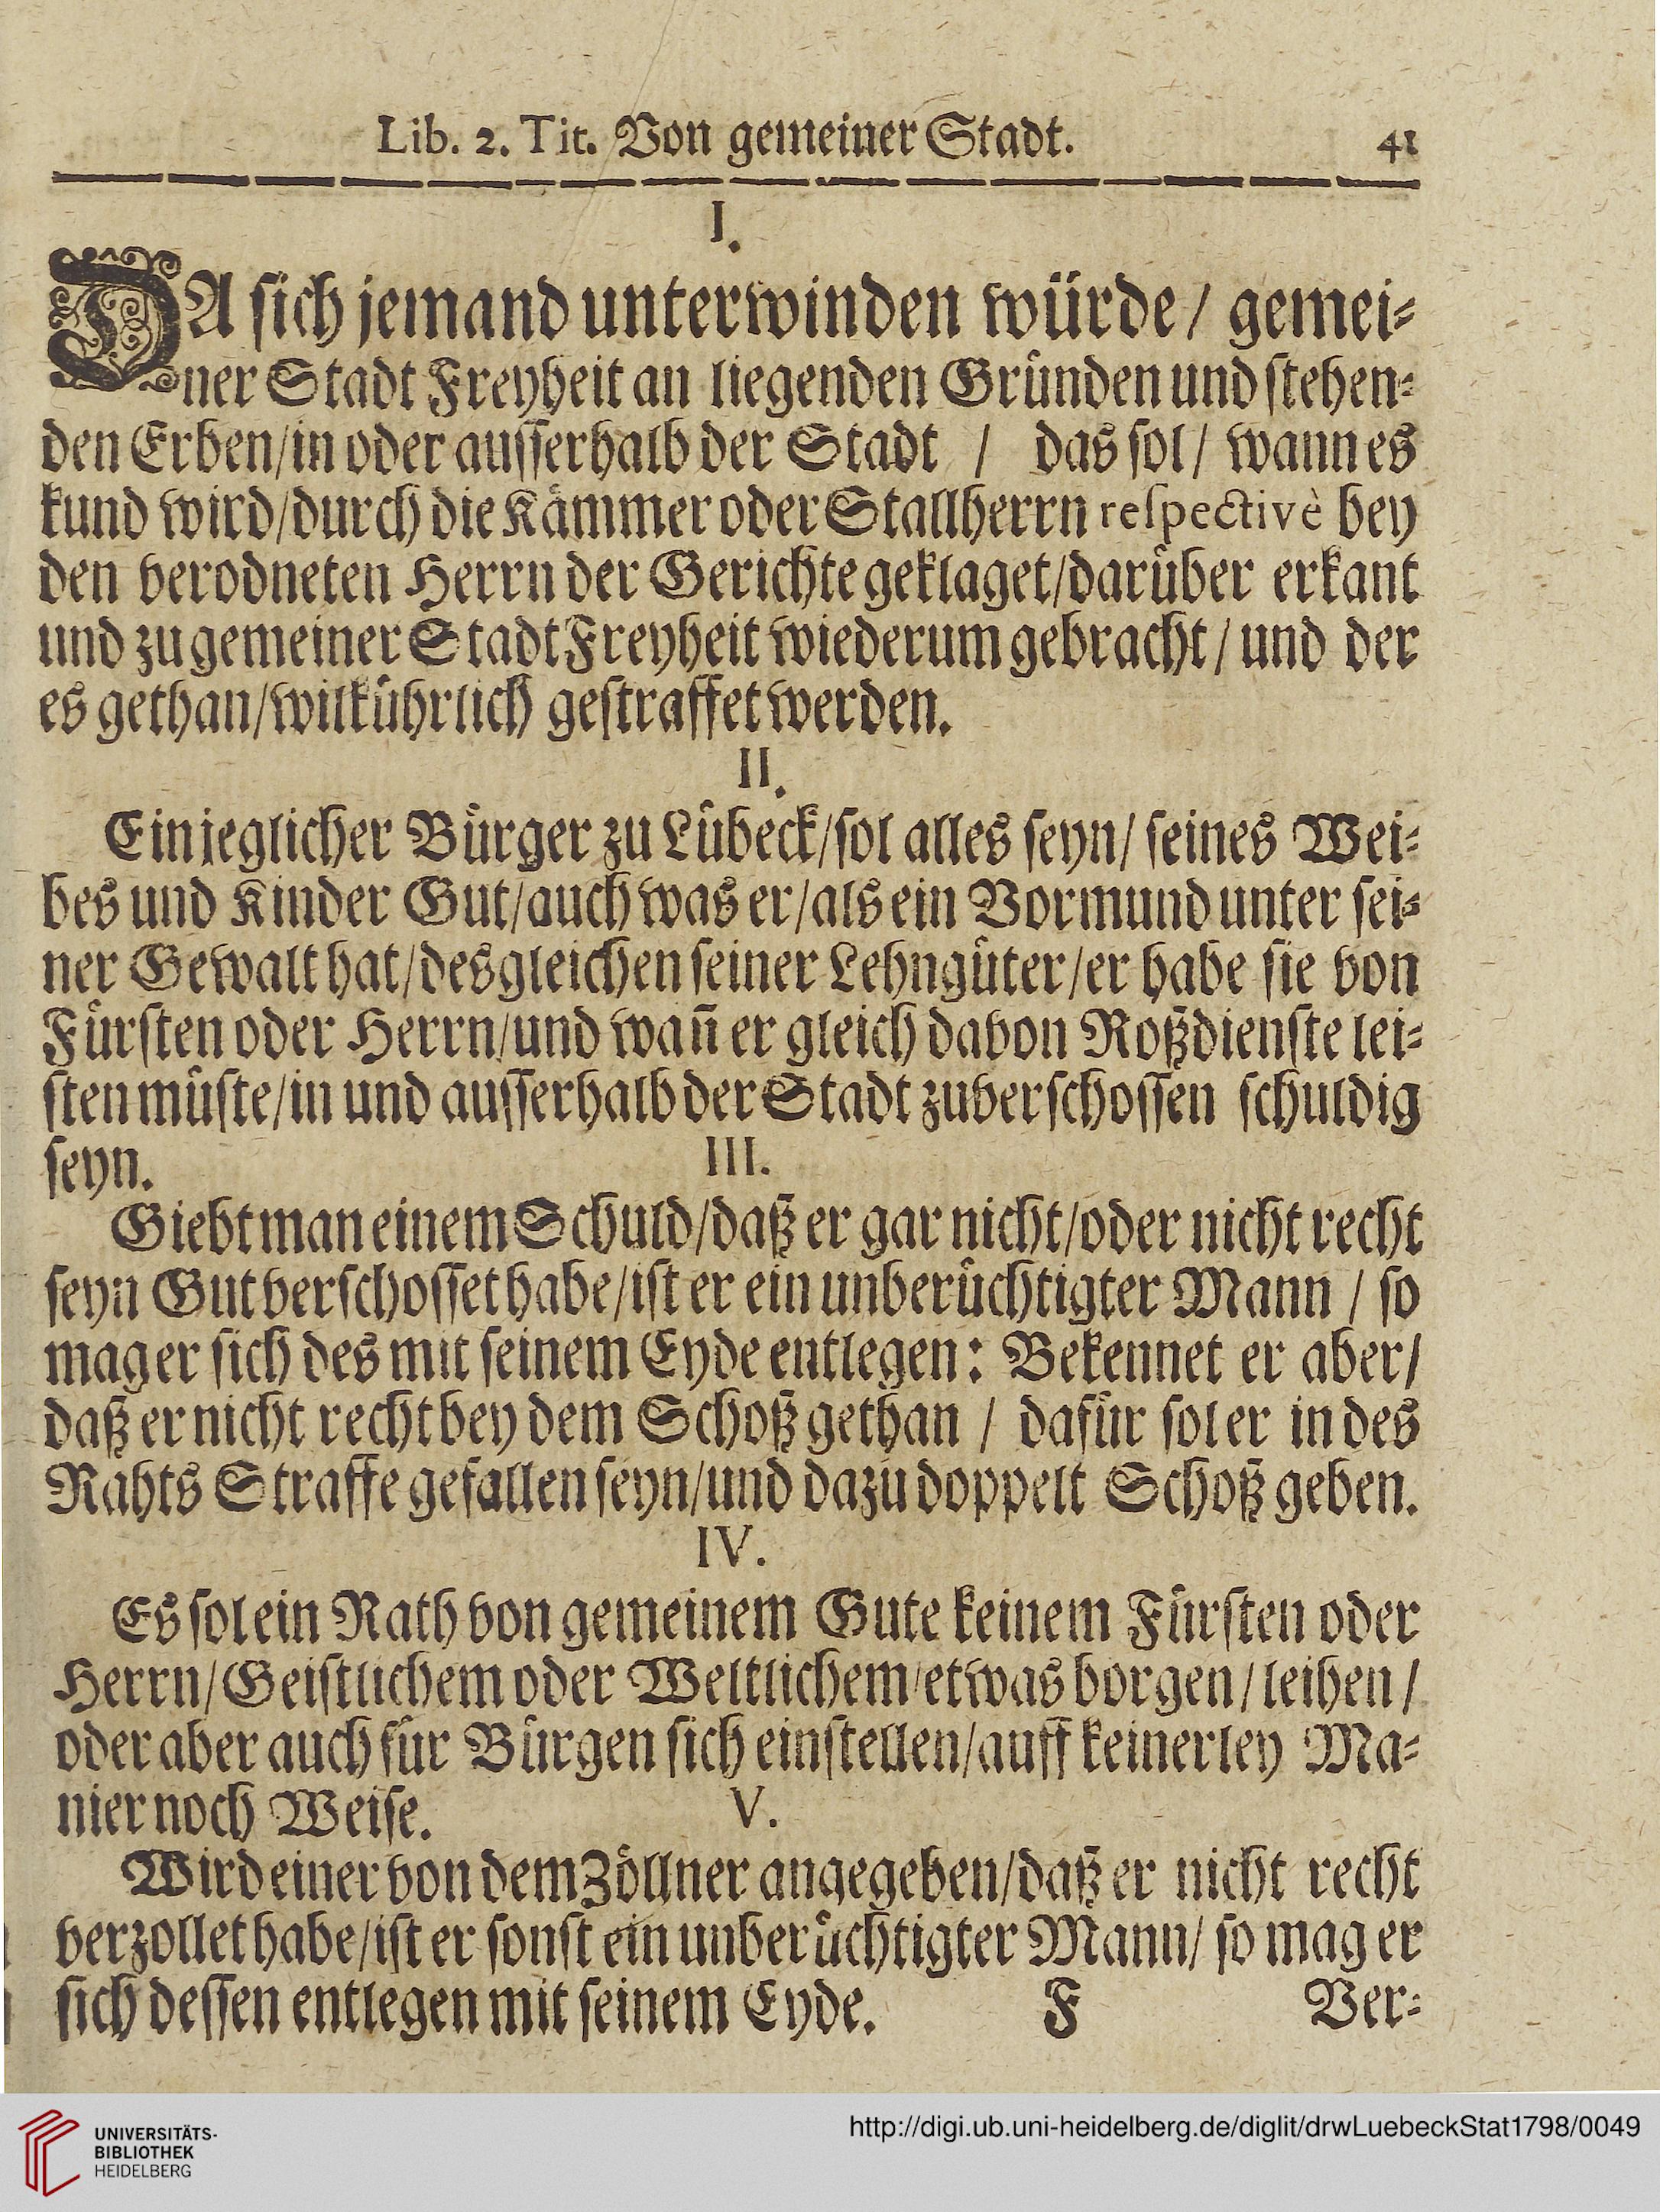 Lib. 2. Tit. Von gemeiner Stadt. 41
I.
DA ſich jemand unterwinden würde / gemei⸗
ner Stadt Freyheit an liegenden Gründen und ſtehen⸗
den Erben / in oder auſſerhalb der Stadt / das ſol / wann es
kund wird / durch die Kämmer oder Stallherrn reſpectivè bey
den verodneten Herrn der Gerichte geklaget / darüber erkant
und zu gemeiner Stadt Freyheit wiederum gebracht / und der
es gethan / wilkührlich geſtraffet werden.
II.
Ein jeglicher Bürger zu Lübeck / ſol alles ſeyn / ſeines Wei⸗
bes und Kinder Gut / auch was er / als ein Vormund unter ſei⸗
ner Gewalt hat / desgleichen ſeiner Lehngüter / er habe ſie von
Fürſten oder Herrn / und wañ er gleich davon Roßdienſte lei⸗
ſten müſte / in und auſſerhalb der Stadt zuverſchoſſen ſchuldig
ſeyn.
III.
Giebt man einem Schuld / daß er gar nicht / oder nicht recht
ſeyn Gut verſchoſſet habe / iſt er ein unberüchtigter Mann / ſo
mag er ſich des mit ſeinem Eyde entlegen: Bekennet er aber /
daß er nicht recht bey dem Schoß gethan / dafür ſol er in des
Rahts Straffe gefallen ſeyn / und dazu doppelt Schoß geben.
IV.
Es ſol ein Rath von gemeinem Gute keinem Fürſten oder
Herrn / Geiſtlichem oder Weltlichem / etwas borgen / leihen /
oder aber auch für Bürgen ſich einſtellen / auff keinerley Ma⸗
nier noch Weiſe.
V.
Wird einer von dem Zöllner angegeben / daß er nicht recht
verzollet habe / iſt er ſonſt ein unberüchtigter Mann / ſo mag er
ſich deſſen entlegen mit ſeinem Eyde. F Ver⸗
UNIVERSITÄTS-
BIBLIOTHEK
HEIDELBERG
http://digi.ub.uni-heidelberg.de/diglit/drwLuebeckStat1798/0049